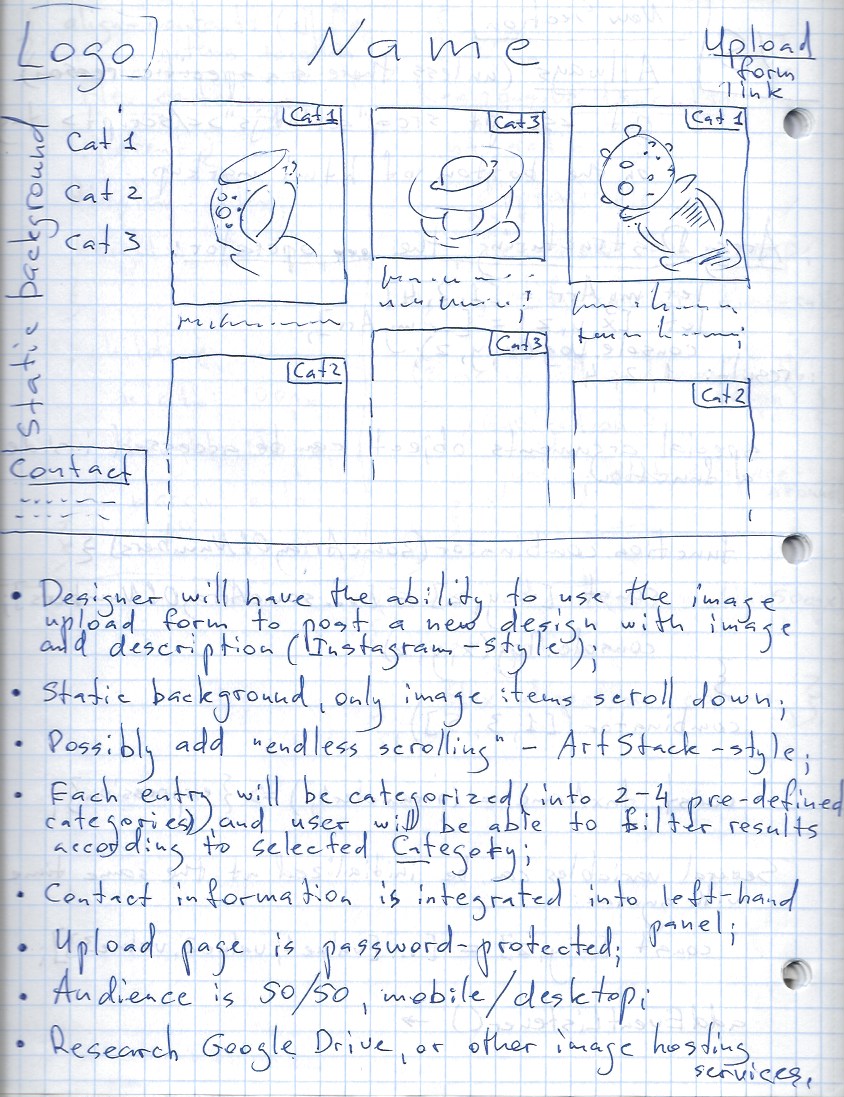 Logo
Name
Upload
form
link
Static background
Cat 1
Cat 2
Cat 3
Cat 1
Cat 3
Cat 1
Cat 2
Cat 3
Cat 2
Contact
• Designer will have the ability to use the image
upload form to post a new design with image
and description (Instagram-style);
• Static background, only image items scroll down;
• Possibly add "endless scrolling" - ArtStack-style;
• Each entry will be categorized (into 2-4 pre-defined
categories) and user will be able to filter results
according to selected Category;
• Contact information is integrated into left-hand
panel;
• Upload page is password-protected;
• Audience is 50/50, mobile/desktop;
• Research Google Drive, or other image hosting
services,